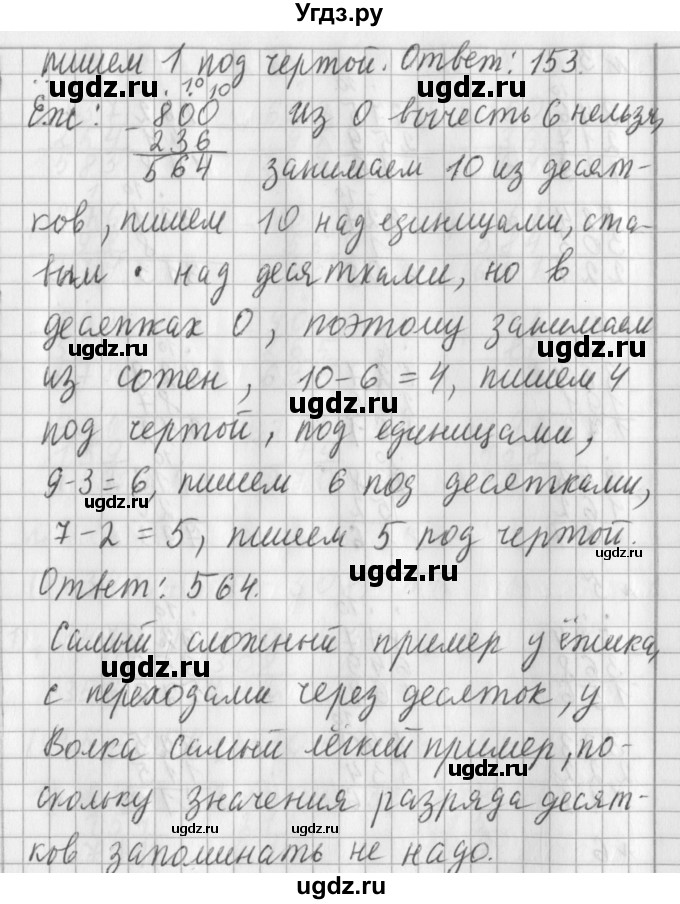 Угдз.ру
пишем 1 под чертой. Ответ: 153.
. 10 10
Ёж: - 800 Из 0 вычесть 6 нельзя,
236
564 занимаем 10 из десят-
ков, пишем 10 над единицами, ста-
вим • над десятками, но в
десятках 0, поэтому занимаем
ugdz.ru ugdz.ru
из сотен, 10-6=4, пишем 4
ugdz.ru
под чертой, под единицами,
9-3=6, пишем 6 под десятками,
ugdz.ru
7-2=5, пишем 5 под чертой.
ugdz.ru ugdz.ru
Ответ: 564.
Самый сложный пример у ёжика,
ugdz.ru
с переходами через десяток, у
Волка самый лёгкий пример, по-
ugdz.ru
скольку значения разряда десят-
ugdz.ru ugdz.ru
ков запоминать не надо.
ugdz.ru